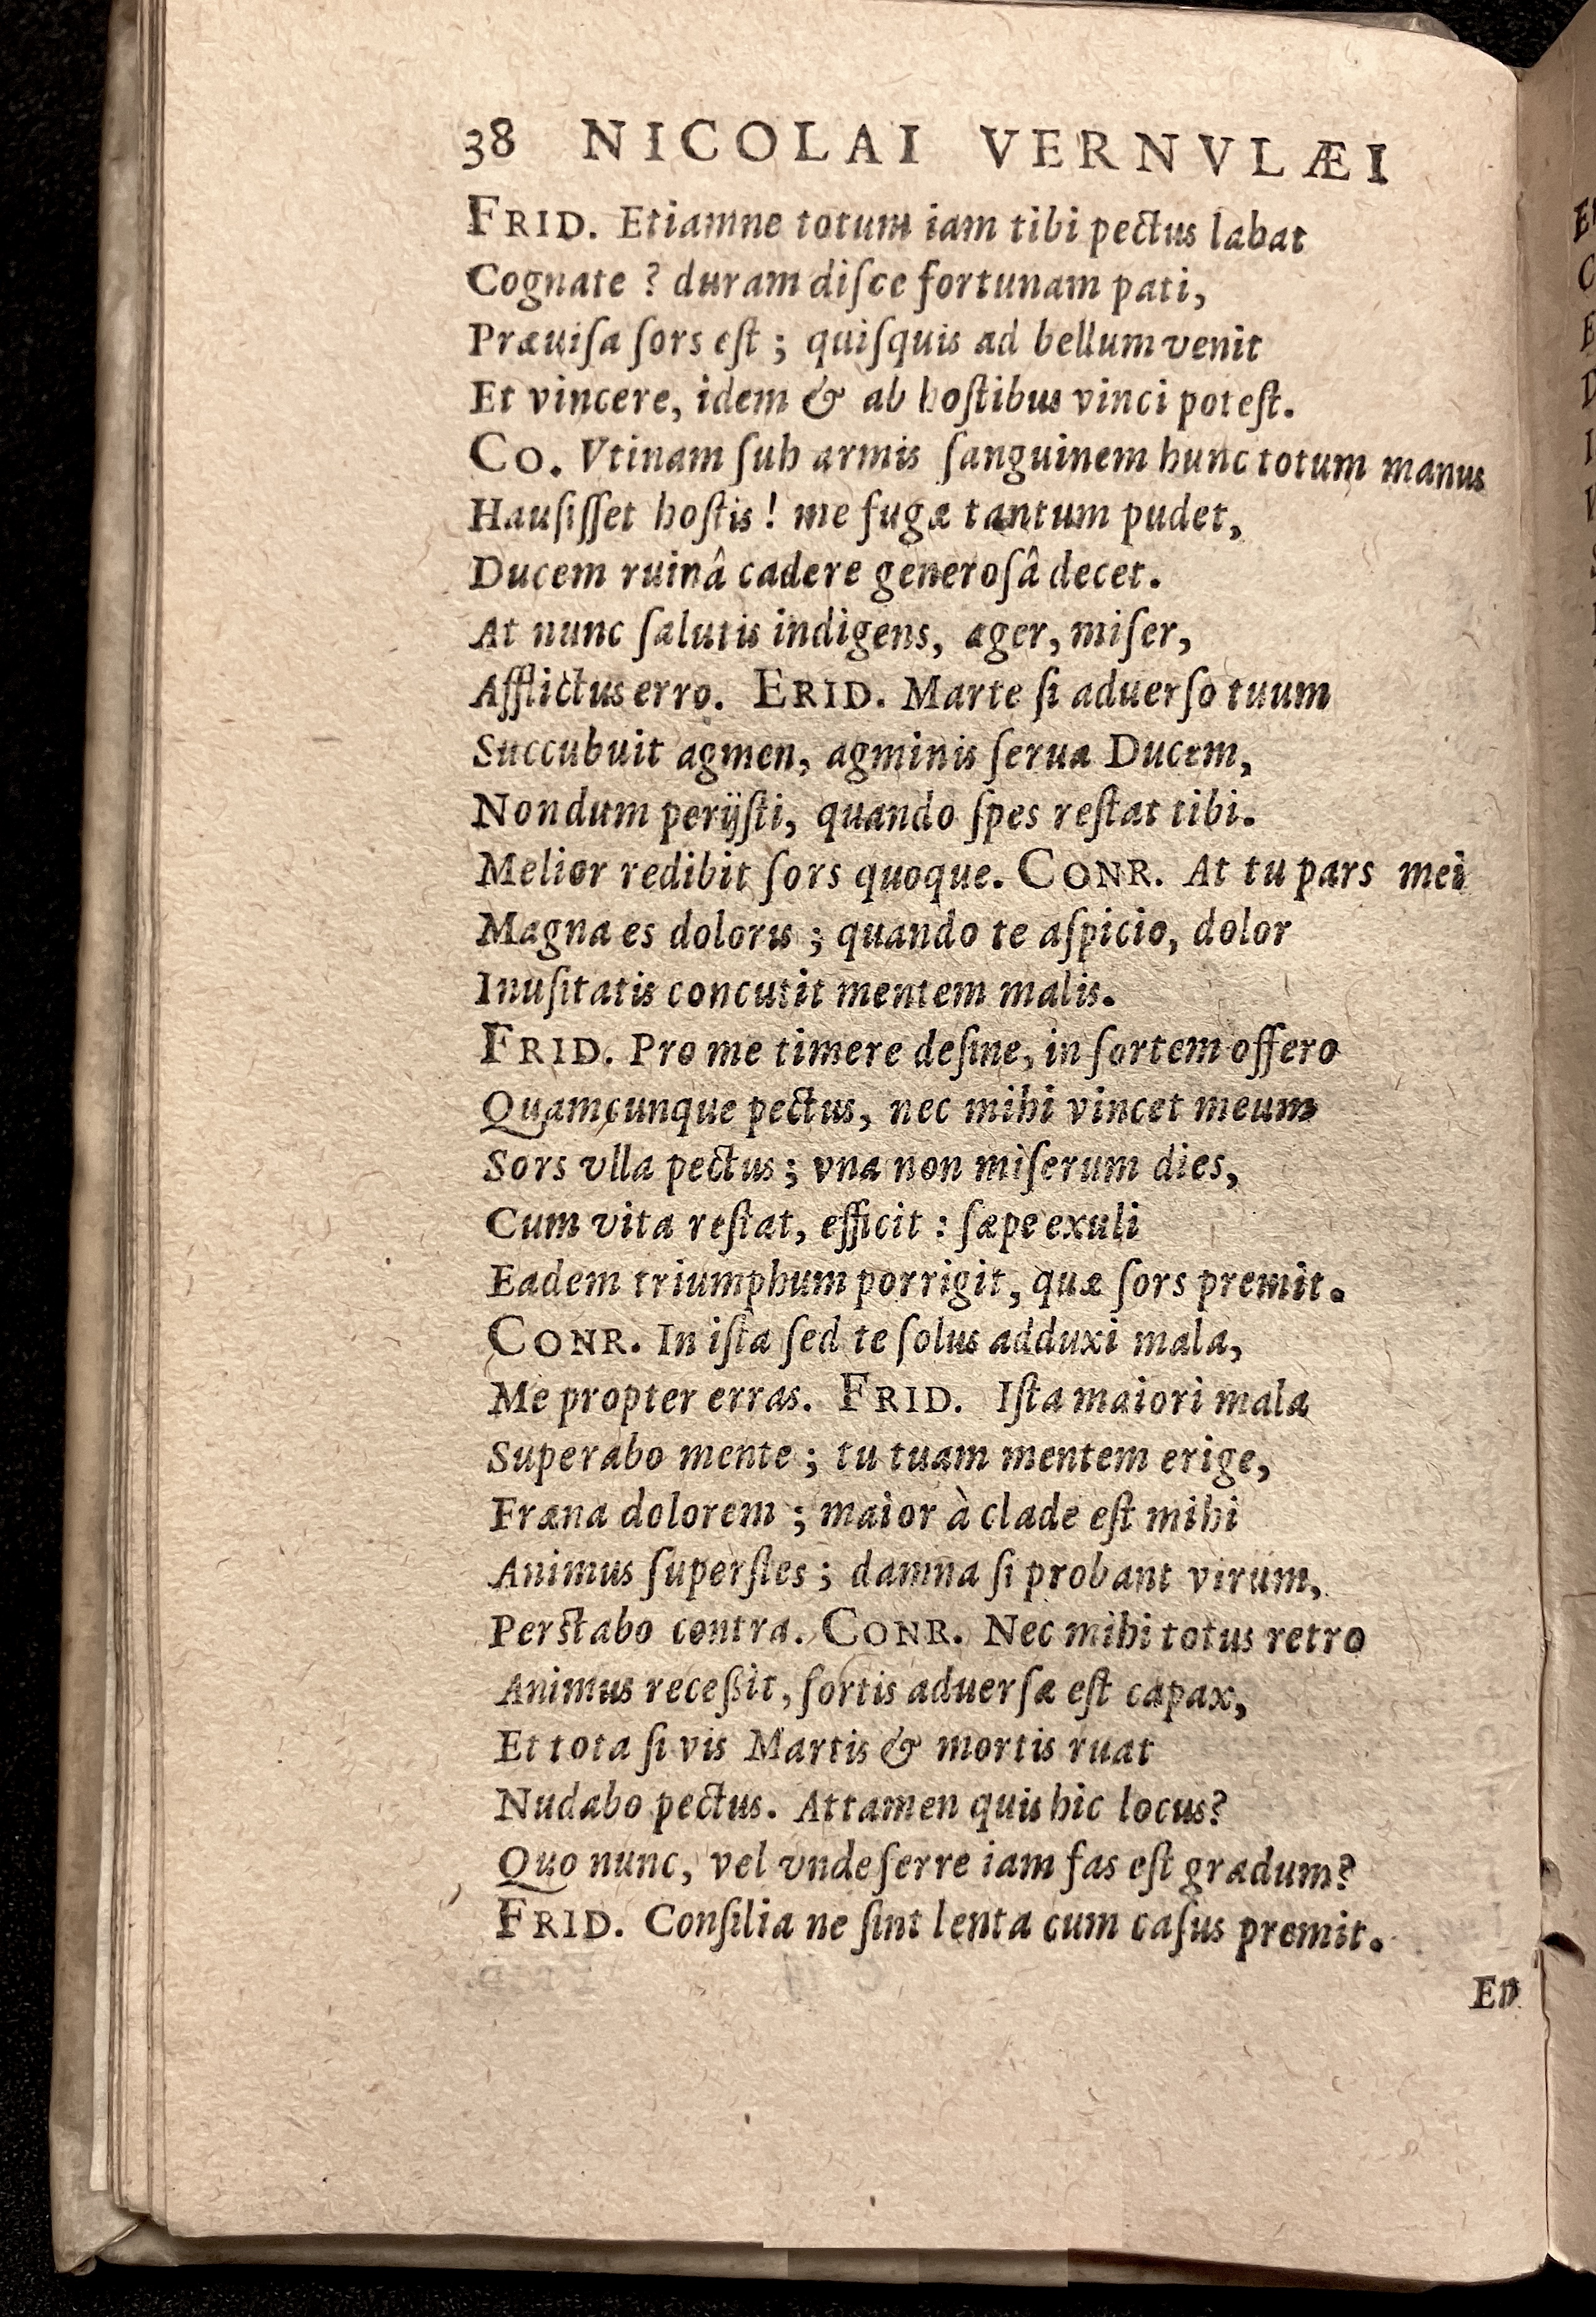 38 NICOLAI VERNVLÆI
FRID. Etiamne totum iam tibi pectus labat
Cognate ? duram diſce fortunam pati,
Præuiſa ſors eſt ; quiſquis ad bellum venit
Et vincere, idem & ab hoſtibus vinci poteſt.
CO. Vtinam ſub armis ſanguinem hunc totum manus
Hauſiſſet hoſtis ! me fugæ tantum pudet,
Ducem ruinâ cadere generoſâ decet.
At nunc ſalutis indigens, æger, miſer,
Afflictus erro. ERID. Marte ſi aduerſo tuum
Succubuit agmen, agminis ſerua Ducem,
Nondum perijſti, quando ſpes reſtat tibi.
Melior redibit ſors quoque. CONR. At tu pars mei
Magna es doloris ; quando te aſpicio, dolor
Inuſitatis concutit mentem malis.
FRID. Pro me timere deſine, in ſortem offero
Quamcunque pectus, nec mihi vincet meum
Sors vlla pectus ; vna non miſerum dies,
Cum vita reſtat, efficit : ſæpe exuli
Eadem triumphum porrigit, quæ ſors premit.
CONR. In iſta ſed te ſolus adduxi mala,
Me propter erras. FRID. Iſta maiori mala
Superabo mente ; tu tuam mentem erige,
Fræna dolorem ; maior à clade eſt mihi
Animus ſuperſtes ; damna ſi probant virum,
Perſtabo contra. CONR. Nec mihi totus retro
Animus receßit, ſortis aduerſæ eſt capax,
Et tota ſi vis Martis & mortis ruat
Nudabo pectus. Attamen quis hic locus?
Quo nunc, vel vnde ferre iam fas eſt gradum?
FRID. Conſilia ne ſint lenta cum caſus premit.
En